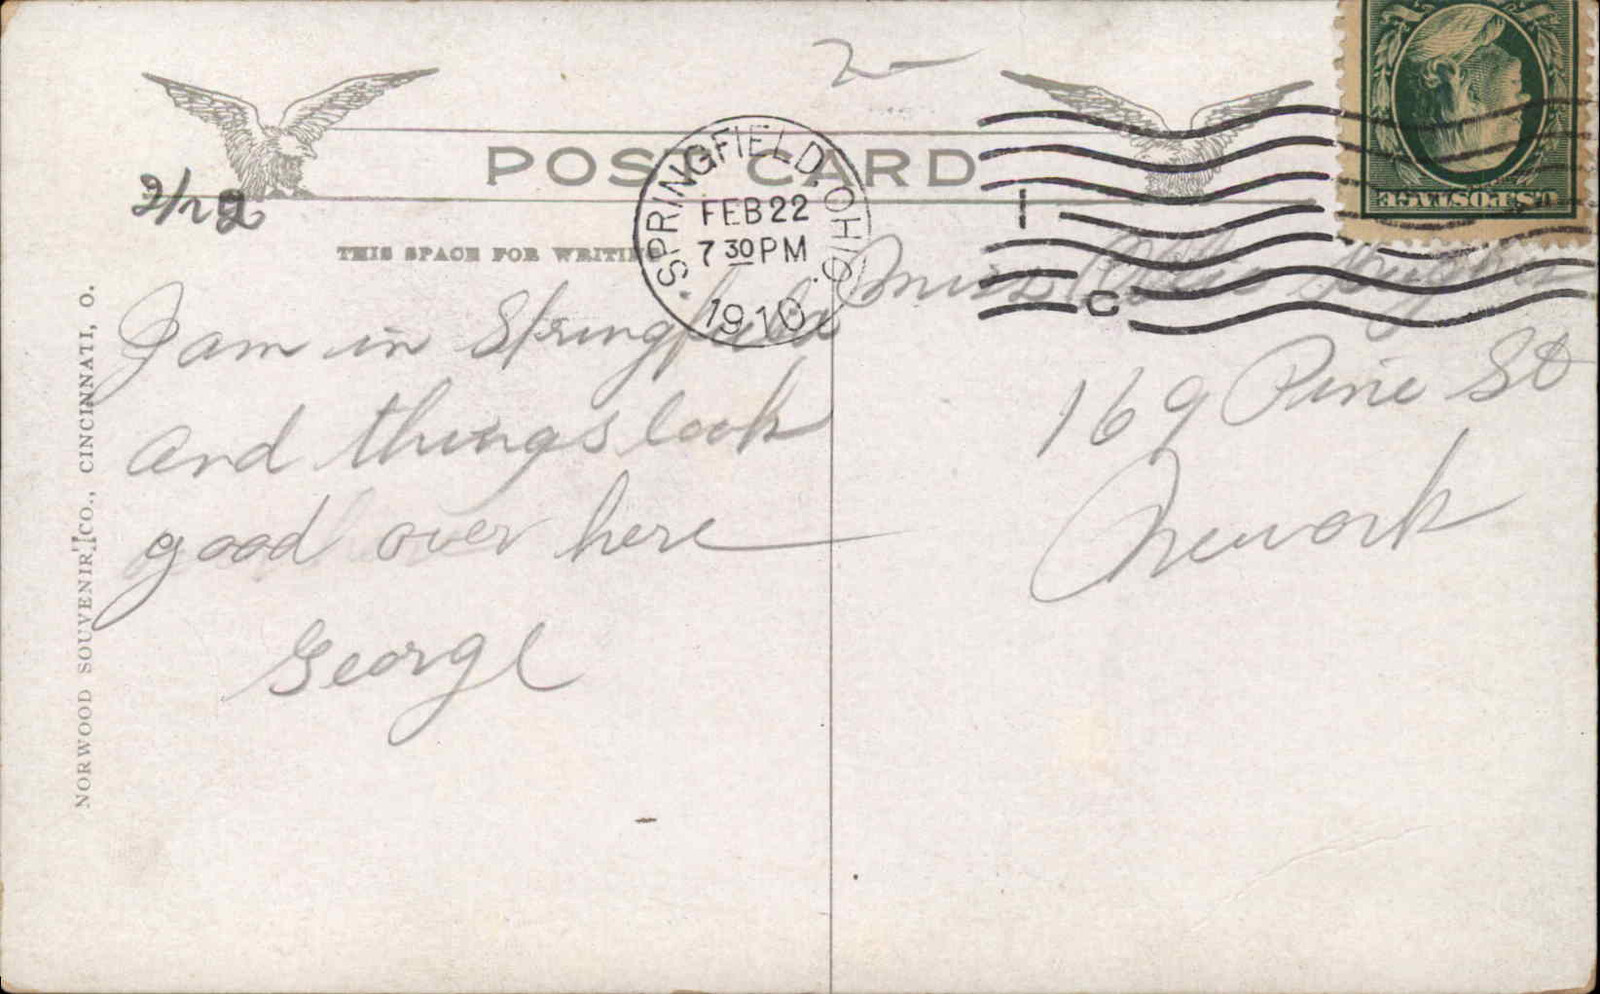 2
POST CARD
2/22
THIS SPACE FOR WRITING
SPRINGFIELD, OHIO.
FEB 22
7 30 PM
1910
1
C
U.S. POSTAGE
I am in Springfield
and things look
good over here
George
Miss
169 Pine St
Newark
NORWOOD SOUVENIR CO., CINCINNATI, O.